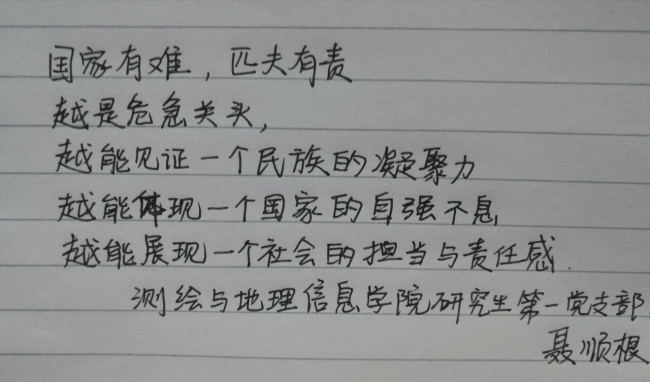 国家有难，匹夫有责
越是危急关头，
越能见证一个民族的凝聚力
越能体现一个国家的自强不息
越能展现一个社会的担当与责任感.
测绘与地理信息学院研究生第一党支部
聂顺根